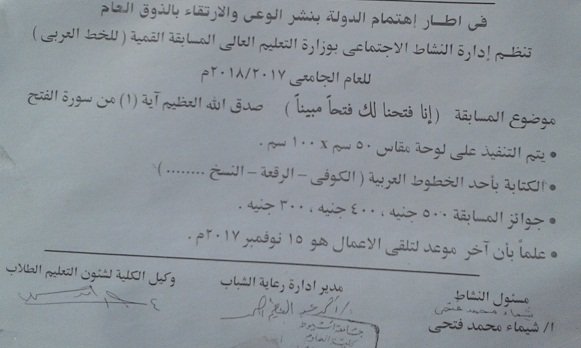 فى اطار إهتمام الدولة بنشر الوعى والارتقاء بالذوق العام
تنظم إدارة النشاط الاجتماعى بوزارة التعليم العالى المسابقة القمية ( للخط العربى )
للعام الجامعى ٢٠١٨/٢٠١٧م
موضوع المسابقة ( إنا فتحنا لك فتحاً مبيناً ) صدق الله العظيم آية (١) من سورة الفتح
• يتم التنفيذ على لوحة مقاس ٥٠ سم x ١٠٠ سم .
• الكتابة بأحد الخطوط العربية ( الكوفى – الرقعة – النسخ ........ )
• جوائز المسابقة ٥٠٠ جنيه ، ٤٠٠ جنيه ، ٣٠٠ جنيه .
• علماً بأن آخر موعد لتلقى الاعمال هو ١٥ نوفمبر ٢٠١٧م .
مسئول النشاط
شيماء محمد فتحى
ا/ شيماء محمد فتحى
مدير ادارة رعاية الشباب
وكيل الكلية لشئون التعليم الطلاب
جامعة أسيوط
كلية العلوم